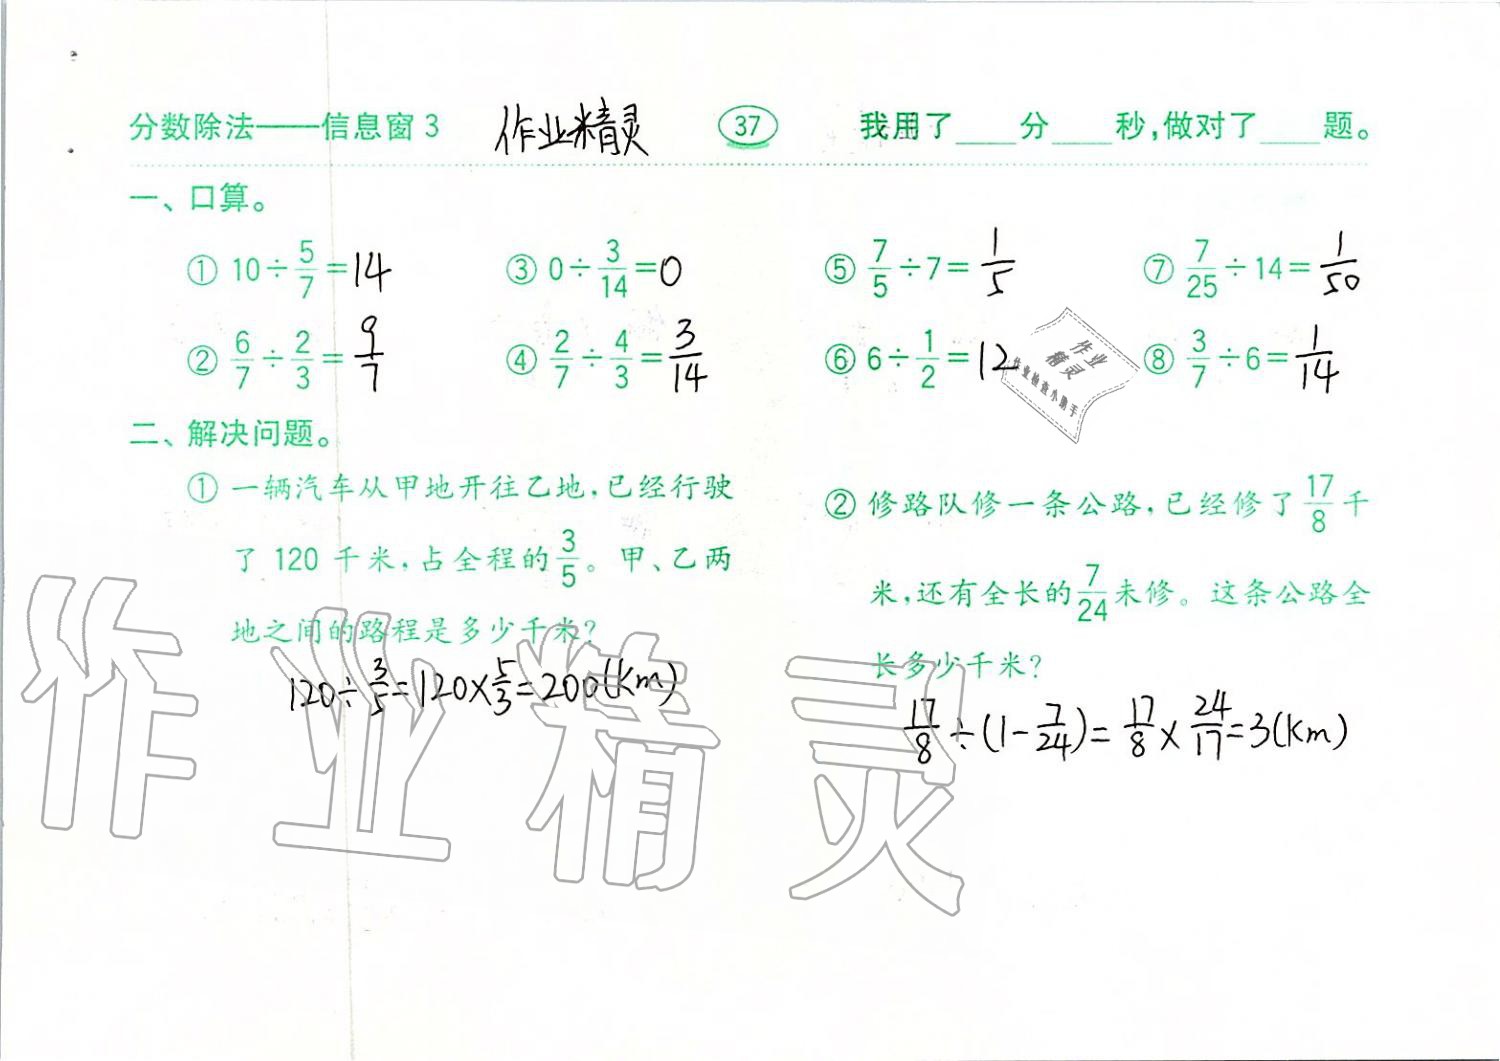 分数除法——信息窗3 作业精灵 37 我用了____分____秒,做对了____题。
一、口算。
① 10÷5/7=14 ③ 0÷3/14=0 ⑤ 7/5÷7=1/5 ⑦ 7/25÷14=1/50
② 6/7÷2/3=9/7 ④ 2/7÷4/3=3/14 ⑥ 6÷1/2=12 ⑧ 3/7÷6=1/14
作业
精灵
作业检查小助手
二、解决问题。
① 一辆汽车从甲地开往乙地,已经行驶
了 120 千米,占全程的3/5。甲、乙两
地之间的路程是多少千米?
120÷3/5=120×5/3=200(km)
② 修路队修一条公路,已经修了17/8千
米,还有全长的7/24未修。这条公路全
长多少千米?
17/8÷(1-7/24)=17/8×24/17=3(km)
作业精灵